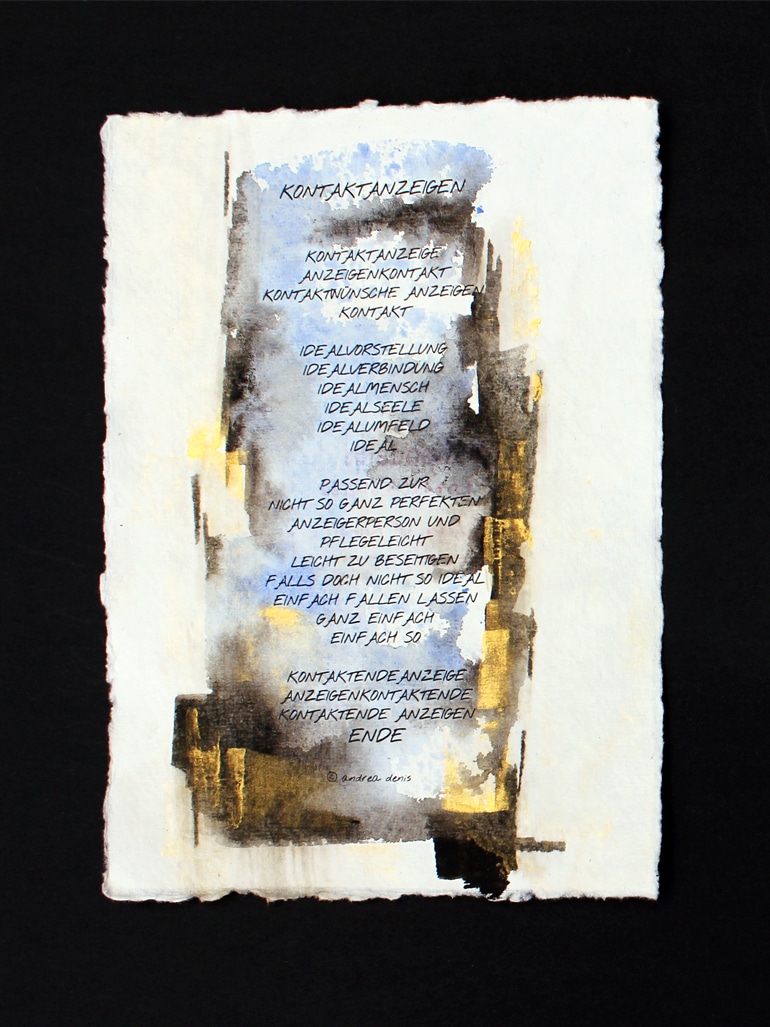 KONTAKTANZEIGEN
KONTAKTANZEIGE
ANZEIGENKONTAKT
KONTAKTWÜNSCHE ANZEIGEN
KONTAKT
IDEALVORSTELLUNG
IDEALVERBINDUNG
IDEALMENSCH
IDEALSEELE
IDEALUMFELD
IDEAL
PASSEND ZUR
NICHT SO GANZ PERFEKTEN
ANZEIGERPERSON UND
PFLEGELEICHT
LEICHT ZU BESEITIGEN
FALLS DOCH NICHT SO IDEAL
EINFACH FALLEN LASSEN
GANZ EINFACH
EINFACH SO
KONTAKTENDEANZEIGE
ANZEIGENKONTAKTENDE
KONTAKTENDE ANZEIGEN
ENDE
© andrea denis